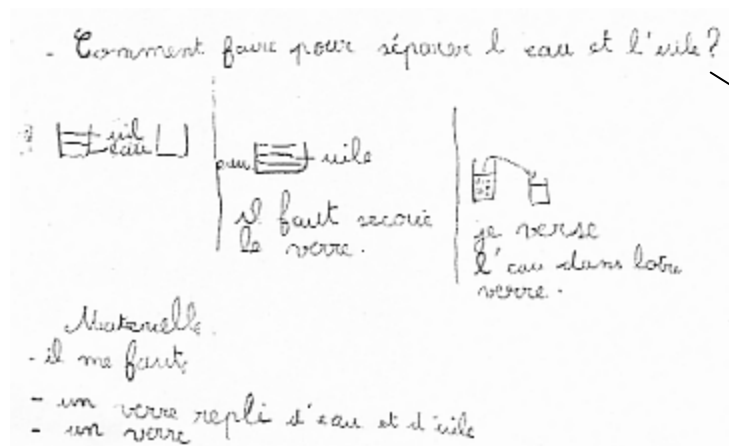 - Comment faire pour séparer l eau et l'uile?
uil
eau
uile
il faut secouié
le verre.
je verse
l'eau dans lotre
verre.
Materielle.
- il me faut,
- un verre repli d'eau et d'uile
- un verre